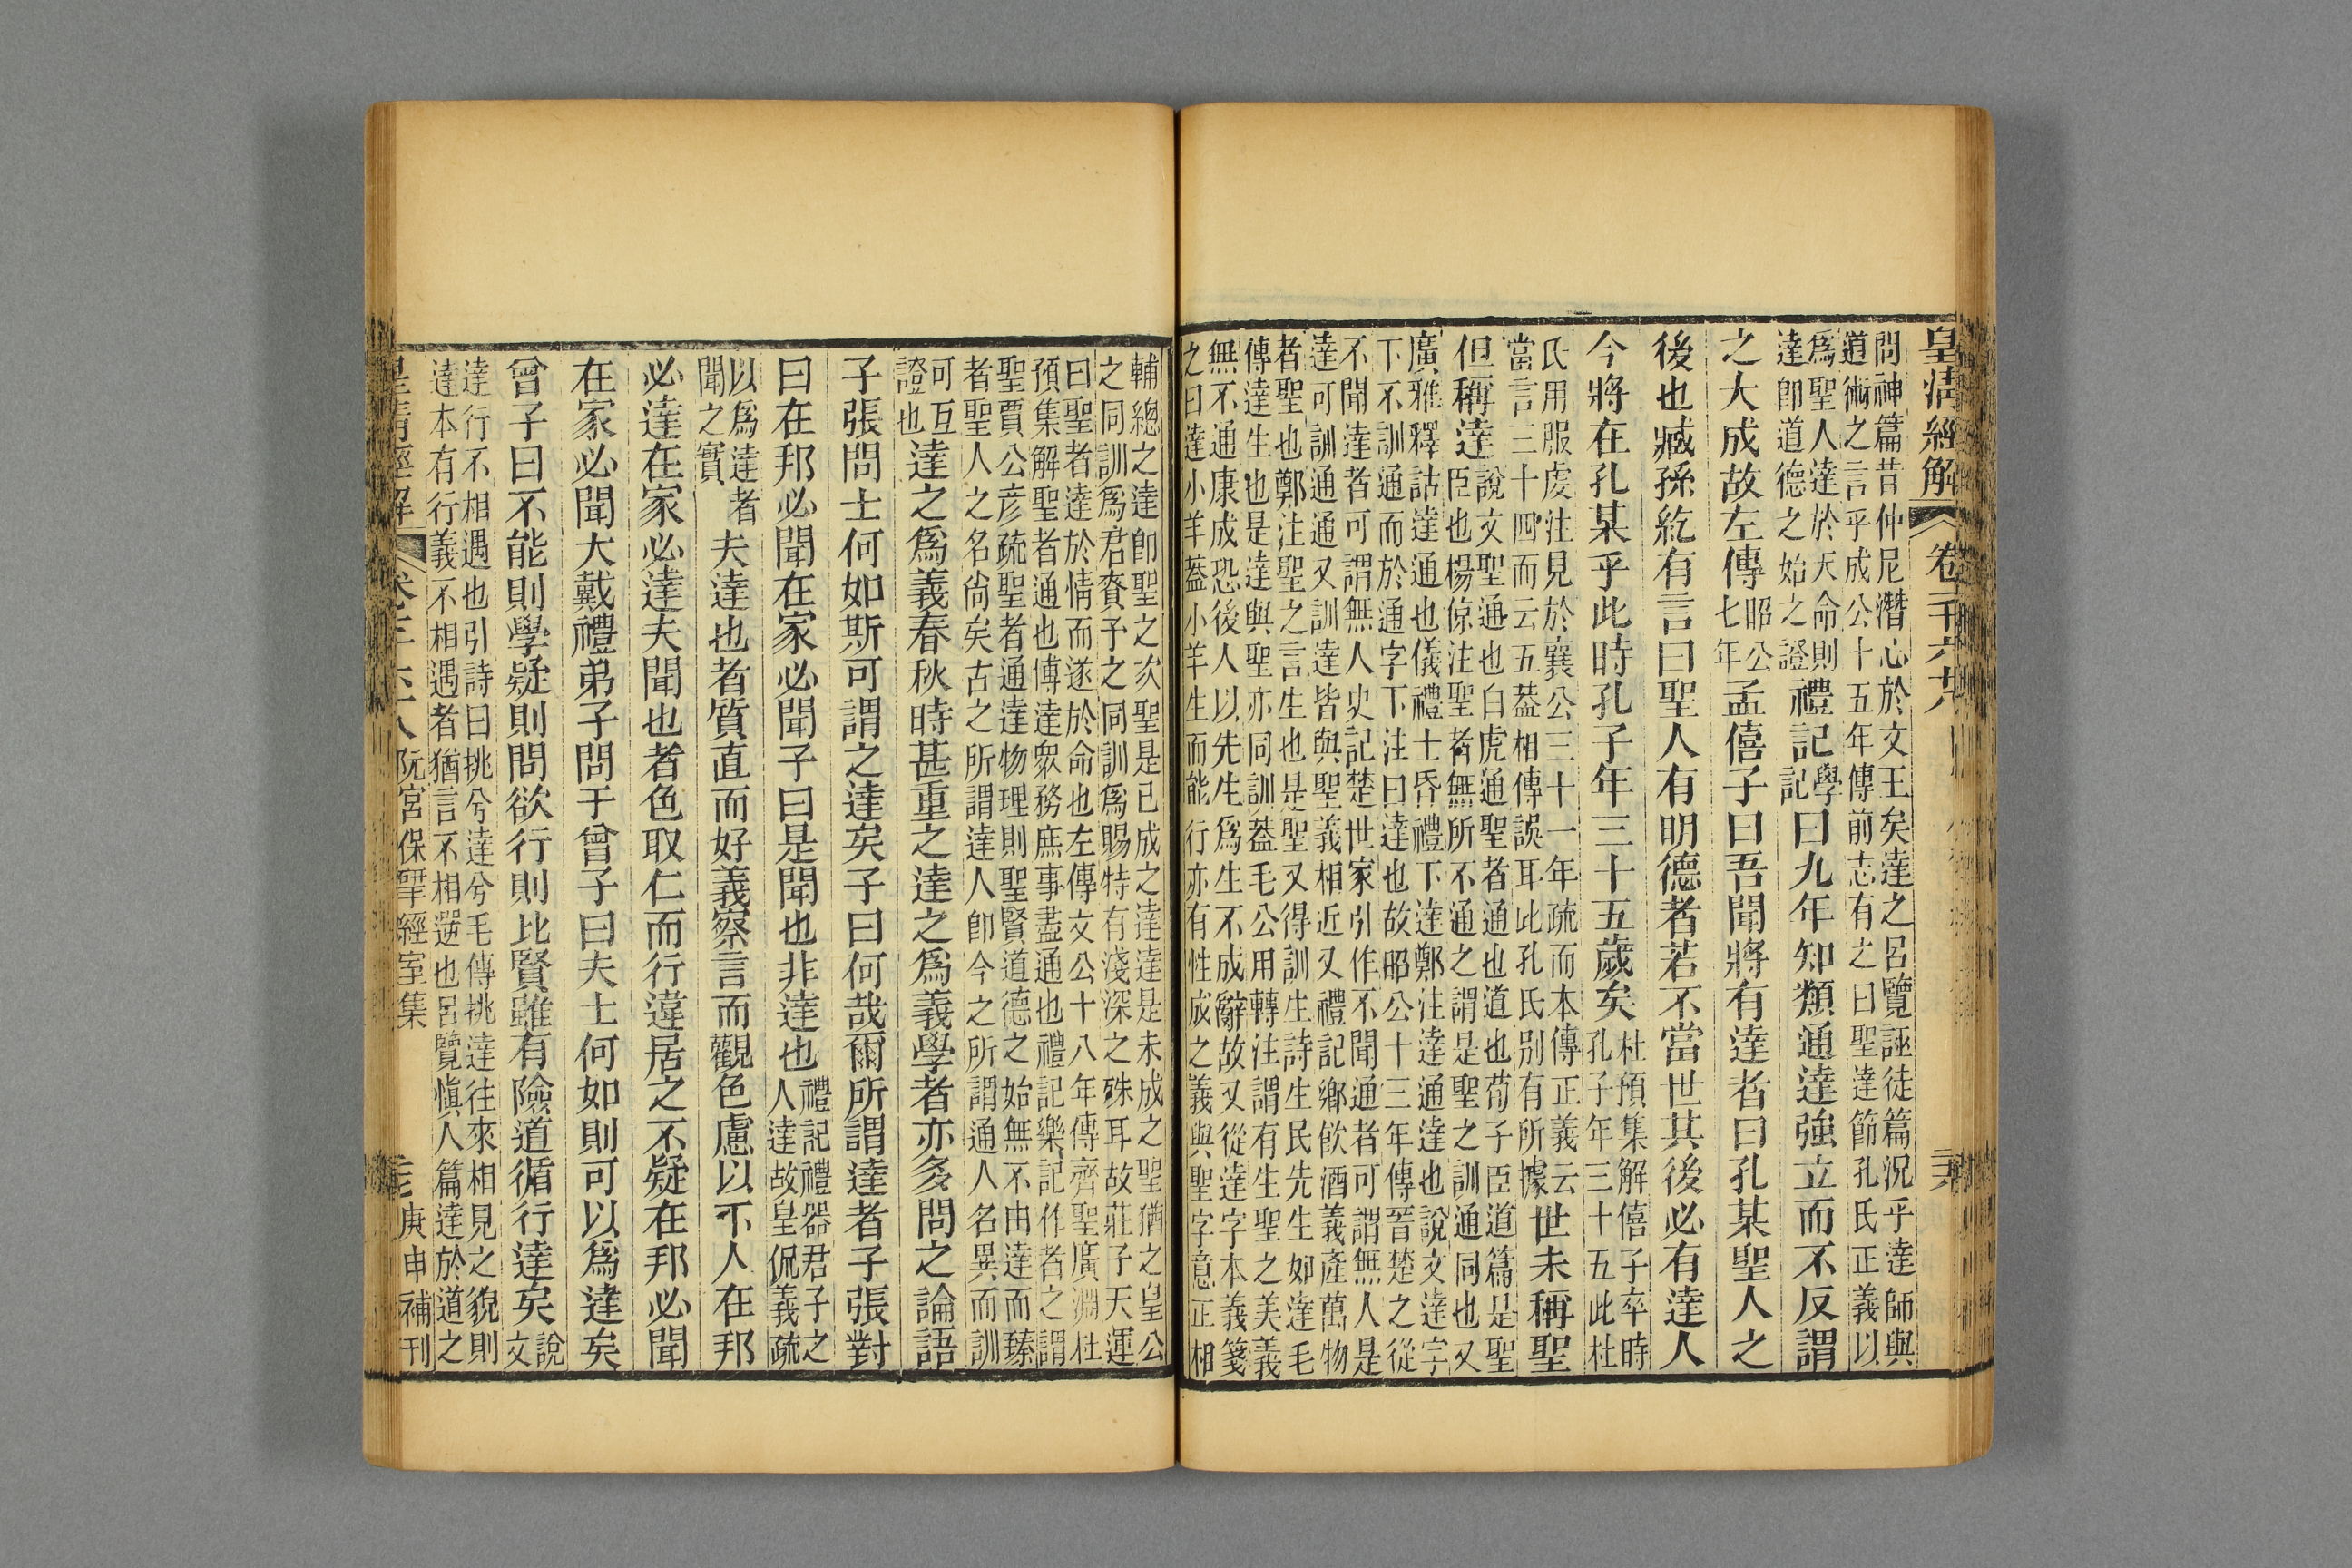 皇清經解 卷一千六十八
問神篇昔仲尼潛心於文王矣達之呂覽誣徒篇況乎達師與
道術之言乎成公十五年傳前志有之曰聖達節孔氏正義以
爲聖人達於天命則
達卽道德之始之證
禮記 學記 曰九年知類通達強立而不反謂
之大成故左傳 昭公七年 孟僖子曰吾聞將有達者曰孔某聖人之
後也臧孫紇有言曰聖人有明德者若不當世其後必有達人
今將在孔某乎此時孔子年三十五歲矣
杜預集解僖子卒時
孔子年三十五此杜
氏用服虔注見於襄公三十一年疏而本傳正義云
當言三十四而云五葢相傳誤耳此孔氏別有所據
世未稱聖
但稱達
說文聖通也白虎通聖者通也道也荀子臣道篇是聖
臣也楊倞注聖者無所不通之謂是聖之訓通同也又
廣雅釋詁達通也儀禮士昏禮下達鄭注達通達也說文達字
下不訓通而於通字下注曰達也故昭公十三年傳晉楚之從
不聞達者可謂無人史記楚世家引作不聞通者可謂無人是
達可訓通通又訓達皆與聖義相近又禮記鄉飲酒義產萬物
者聖也鄭注聖之言生也是聖又得訓生詩生民先生如達毛
傳達生也是達與聖亦同訓葢毛公用轉注謂有生聖之美義
無不通康成恐後人以先生爲生不成辭故又從達字本義箋
之曰達小羊葢小羊生而能行亦有性成之義與聖字意正相
輔總之達卽聖之次聖是已成之達達是未成之聖猶之皇公
之同訓爲君賚予之同訓爲賜特有淺深之殊耳故莊子天運
曰聖者達於情而遂於命也左傳文公十八年傳齊聖廣淵杜
預集解聖者通也傳達眾務庶事盡通也禮記樂記作者之謂
聖賈公彥疏聖者通達物理則聖賢道德之始無不由達而臻
者聖人之名尙矣古之所謂達人卽今之所謂通人名異而訓
可互
證也
達之爲義春秋時甚重之達之爲義學者亦多問之論語
子張問士何如斯可謂之達矣子曰何哉爾所謂達者子張對
曰在邦必聞在家必聞子曰是聞也非達也
禮記禮器君子之
人達故皇侃義疏
以爲達者
聞之實
夫達也者質直而好義察言而觀色慮以下人在邦
必達在家必達夫聞也者色取仁而行違居之不疑在邦必聞
在家必聞大戴禮弟子問于曾子曰夫士何如則可以爲達矣
曾子曰不能則學疑則問欲行則比賢雖有險道循行達矣 說文
達行不相遇也引詩曰挑兮達兮毛傳挑達往來相見之貌則
達本有行義不相遇者猶言不相遻也呂覽愼人篇達於道之
皇清經解 阮宮保揅經室集 庚申補刊